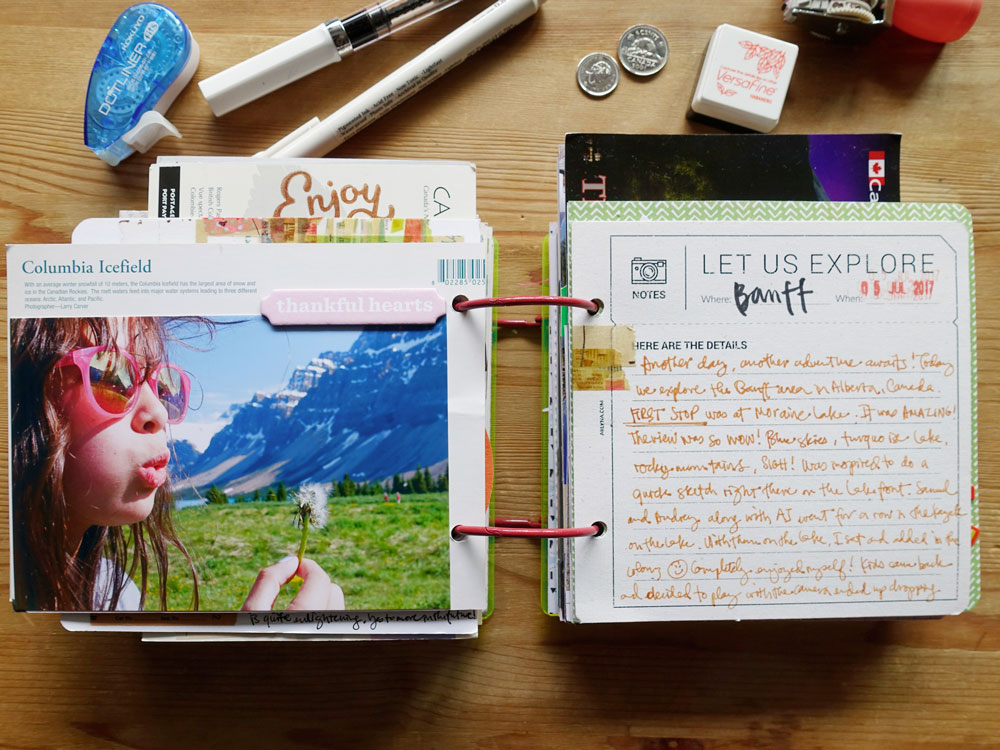 KOKUYO
DOTLINER
CANADA
VersaFine
HABANERO
POSTAGE
PORT PAY
Enjoy
CA
Canada's
T
Ca
Columbia Icefield
With an average winter snowfall of 10 meters, the Columbia Icefield has the largest area of snow and
ice in the Canadian Rockies. The melt waters feed into major water systems leading to three different
oceans: Arctic, Atlantic, and Pacific.
Photographer—Larry Carver
6 02285 025
thankful hearts
is quite enlightening. Yes to more in the future!
LET US EXPLORE
NOTES
Where: Banff When: 05 JUL 2017
HERE ARE THE DETAILS
Another day, another adventure awaits! Today
we explore the Banff area in Alberta, Canada.
FIRST STOP was at Moraine Lake. It was AMAZING!
The view was so WOW! Blue skies, turquoise lake,
rocky mountains, sigh! Was inspired to do a
quick sketch right there on the lakefront. Samuel
and Audrey along with AJ went for a row in the kayak
on the lake. With them on the lake, I sat and added in the
colors Completely enjoyed myself! Kids came back
and decided to play with the camera, ended up dropping